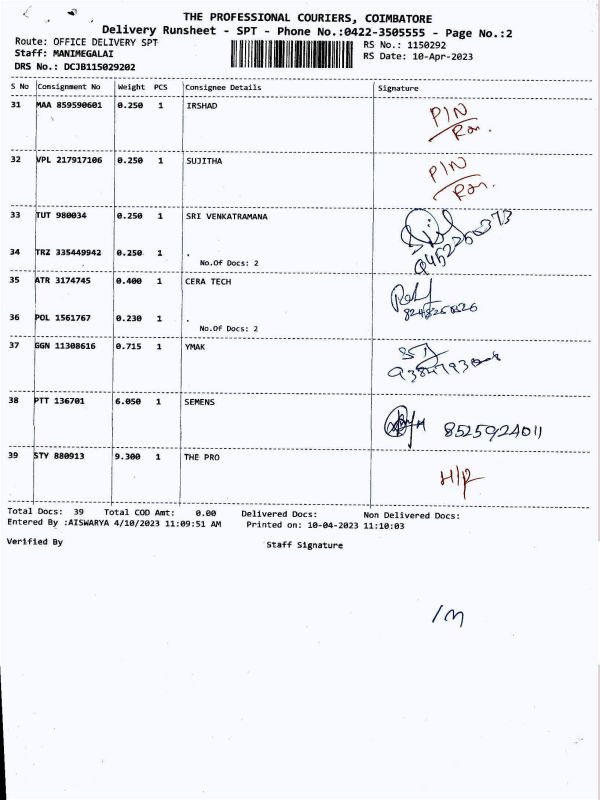 THE PROFESSIONAL COURIERS, COIMBATORE
Delivery Runsheet - SPT - Phone No.:0422-3505555 - Page No.:2
Route: OFFICE DELIVERY SPT
RS No.: 1150292
Staff: MANIMEGALAI
RS Date: 10-Apr-2023
DRS No.: DCJB115029202
S No Consignment No Weight PCS Consignee Details Signature
31 MAA 859590601 0.250 1 IRSHAD
PIN
32 VPL 217917106 0.250 1 SUJITHA
PIN
33 TUT 980034 0.250 1 SRI VENKATRAMANA
34 TRZ 335449942 0.250 1 .
No.Of Docs: 2
35 ATR 3174745 0.400 1 CERA TECH
36 POL 1561767 0.230 1 .
No.Of Docs: 2
37 GGN 11308616 0.715 1 YMAK
38 PTT 136701 6.050 1 SEMENS
8525924011
39 STY 880913 9.300 1 THE PRO
H/R
Total Docs: 39 Total COD Amt: 0.00 Delivered Docs: Non Delivered Docs:
Entered By :AISWARYA 4/10/2023 11:09:51 AM Printed on: 10-04-2023 11:10:03
Verified By Staff Signature